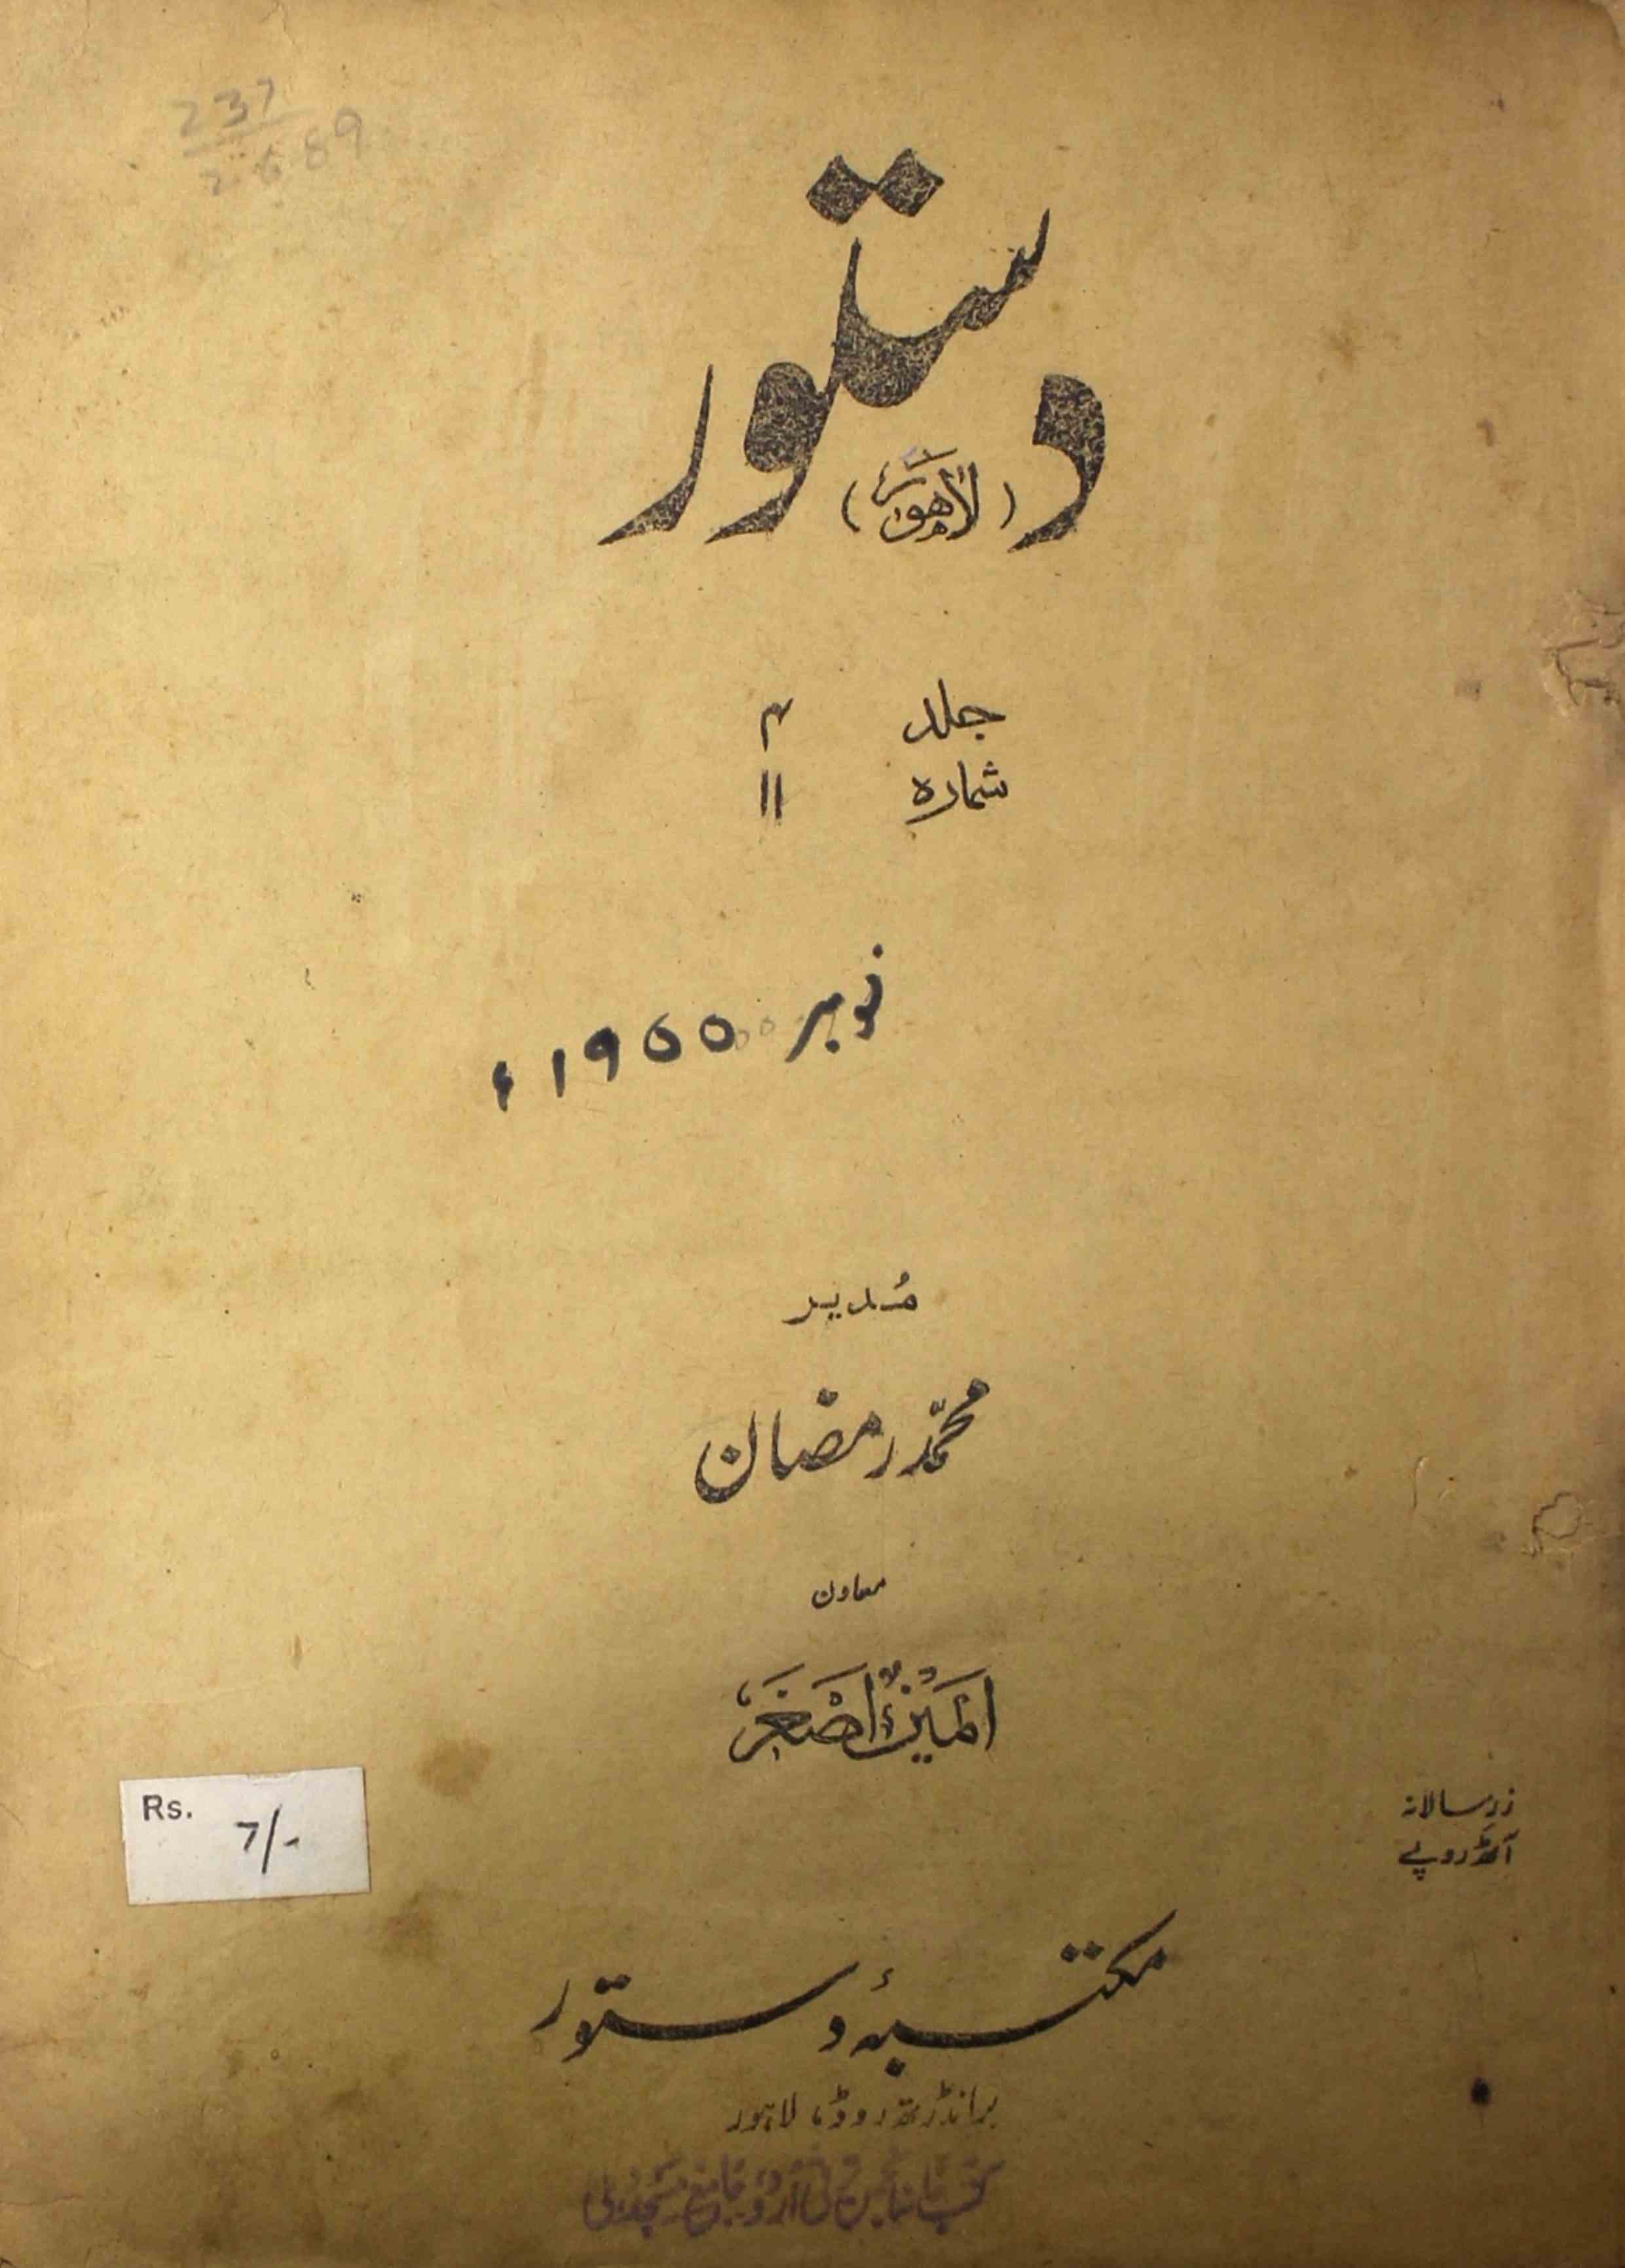 237
2689
دستور
(لاہور)
جلد ۴
شمارہ ۱۱
نومبر ۱۹۵۵ء
مُدیر
محمّد رمضان
معاون
امین اصغر
Rs. 7/-
زرِ سالانہ
آٹھ روپے
مکتبۂ دستور
برانڈرتھ روڈ، لاہور
کتب خانہ انجمن ترقی اردو جامع مسجد دہلی